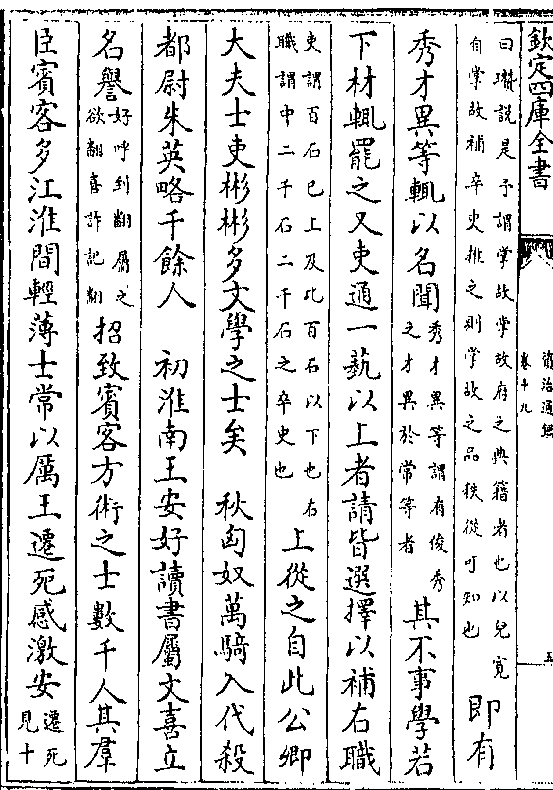 欽定四庫全書
資治通鑑
卷十九
五
曰瓚說是予謂掌故掌故府之典籍者也以兒寬
自掌故補卒史推之則掌故之品秩從可知也
即有
秀才異等輒以名聞
秀才異等謂有俊秀
之才異於常等者
其不事學若
下材輒罷之又吏通一藝以上者請皆選擇以補右職
吏謂百石已上及比百石以下也右
職謂中二千石二千石之卒史也
上從之自此公卿
大夫士吏彬彬多文學之士矣 秋匈奴萬騎入代殺
都尉朱英略千餘人 初淮南王安好讀書屬文喜立
名譽
好呼到翻屬之
欲翻喜許記翻
招致賓客方術之士數千人其羣
臣賓客多江淮間輕薄士常以厲王遷死感激安
遷死
見十